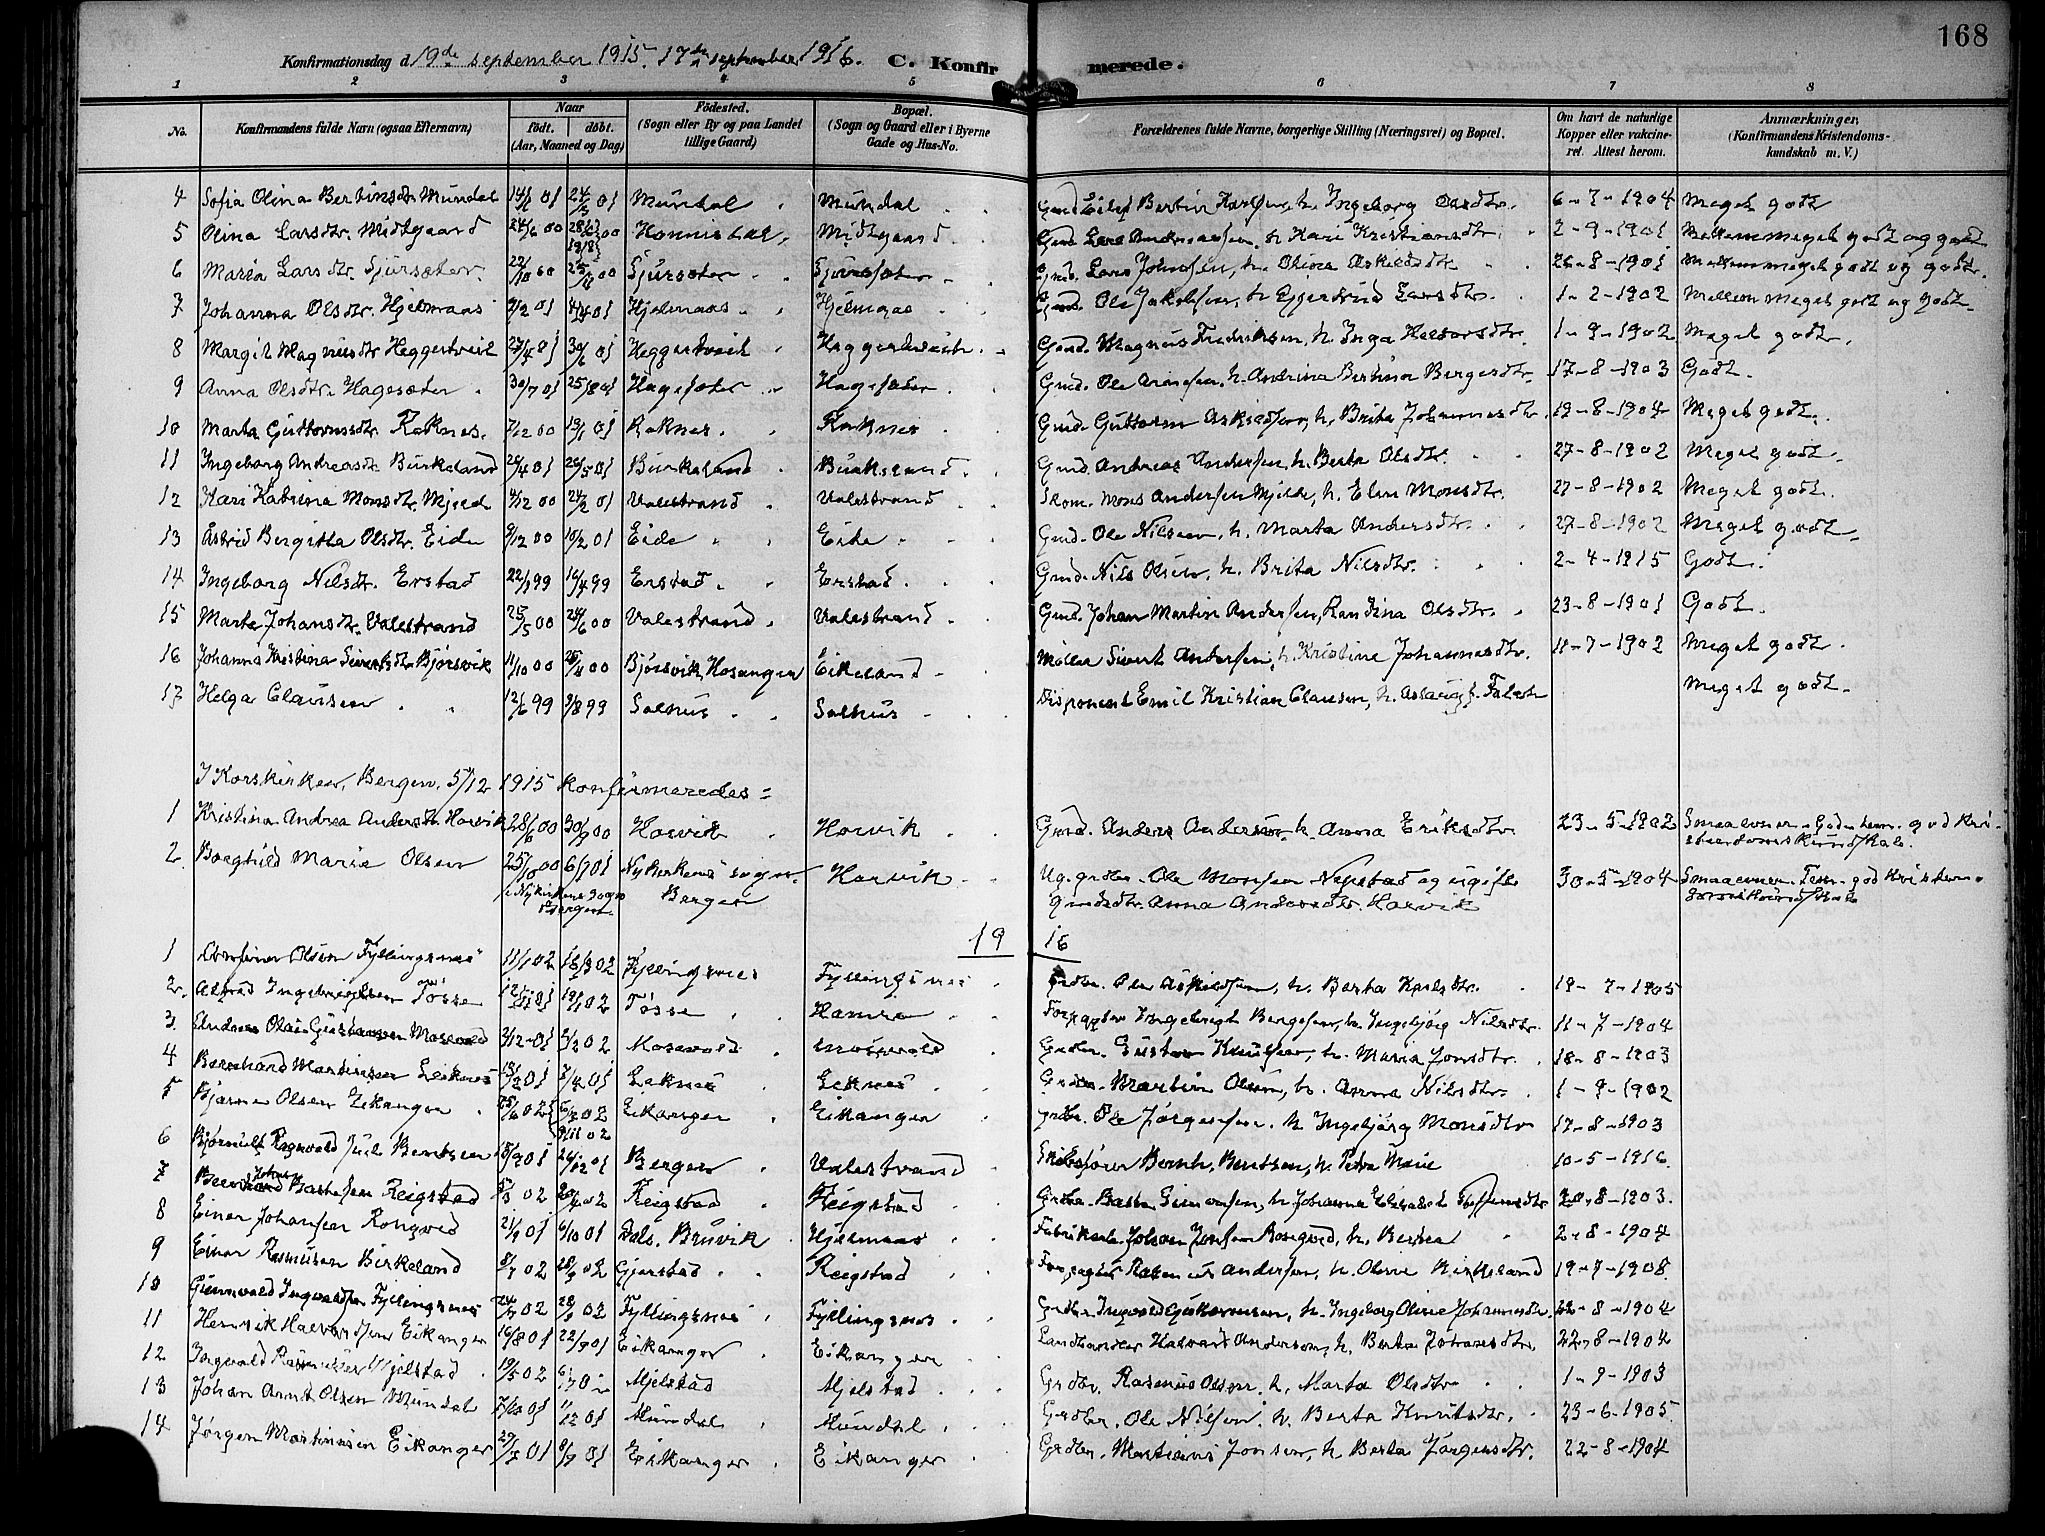 168
Konfirmationsdag d 19de september 1915. 17de september 1916. C. Konfirmerede.
1 2 3 4 5 6 7 8
No. Konfirmandens fulde Navn (ogsaa Efternavn) Naar født. døbt. (Aar, Maaned og Dag) Fødested. (Sogn eller By og paa Landet tillige Gaard) Bopæl. (Sogn og Gaard eller i Byerne Gade og Hus-No. Forældrenes fulde Navne, borgerlige Stilling (Næringsvei) og Bopæl. Om havt de naturlige Kopper eller vakcineret. Attest herom. Anmærkninger, (Konfirmandens Kristendomskundskab m. V.)
4 Sofia Olina Bertinsdtr. Mundal 01 01 Mundal Mundal Gmd. Bertin h. Ingeborg Olsdtr. 6-7-1904 Meget godt
5 Olina Larsdtr. Midtgaard 24/6 00 Midtgaard Gmd. Lars Andreassen, h. Kari Kristiansdtr. 2-9-1901 Mellem meget godt og godt
6 Maria Larsdtr. Sjursæter 22/10 00 25/11 00 Sjursæter Sjursæter Gmd. Lars Johnsen, h. Olina Askeldsdtr. 26-8-1901 Mellem meget godt og godt.
7 Johanna Olsdtr. Hjelmaas 9/2 01 01 Hjelmaas Hjelmaas Gmd. Ole Jakobsen, h. Gjertrud Larsdtr. 1-2-1902 Mellem meget godt og godt.
8 Margit Magnusdtr. Heggertveit 27/4 01 30/6 01 Heggertveit Heggertveit Gmd. Magnus Fredriksen, h. Inga Halvorsdtr. 1-9-1902 Meget godt.
9 Anna Olsdtr. Hagesæter 30/7 01 25/8 01 Hagesæter Hagesæter Gmd. Ole Arnesen, h. Andrina Bertina Bergesdtr. 17-8-1903 Godt.
10 Marta Guttormsdtr. Raknes. 7/12 00 13/1 01 Raknes. Raknes Gmd. Guttorm h. Brita Johannesdtr. 19-8-1904 Meget godt.
11 Ingeborg Andreasdtr. Burkeland 26/4 01 26/5 01 Burkeland Burkeland Gmd. Andreas Andersen, h. Berta Olsdtr. 27-8-1902 Meget godt.
12 Kari Katrina Monsdtr. 4/12 00 24/2 01 Valestrand Valestrand Skom. Mons Andersen Mjelde, h. Elen Monsdtr. 27-8-1902 Meget godt.
13 Astrid Bergitta Olsdtr. Eide 9/12 00 10/2 01 Eide Eide Gmd. Ole Nilsen, h. Marta Andersdtr. 27-8-1902 Meget godt.
14 Ingeborg Nilsdtr. Erstad 22/ 99 16/4 99 Erstad. Erstad. Gmd. Nils Olsen, h. Brita Nilsdtr. 2-4-1915 Godt.
15 Marta Johansdtr. Valestrand 25/5 00 24/6 00 Valestrand. Valestrand Gmd. Johan Martin Andersen, Randina Olsdtr. 23-8-1901 Godt.
16 Johanna Kristina Sivertsdtr. Bjørsvik 11/10 00 00 Bjørsvik, Hosanger Eikeland Møller Sivert Andersen, h. Kristine Johannesdtr. 11-7-1902 Meget godt.
17 Helga Clausen 12/6 99 9/8 99 Salhus Salhus Disponent Emil Kristian Clausen, h. Aslaug f. Falch Meget godt.
I Korskirken, Bergen, 5/12 1915 konfirmeredes =
1 Kristina Andrea Andersdtr. Horvik 28/6 00 30/9 00 Horvik Horvik Gmd. Anders Andersen, h. Anna Eriksdtr. 23-5-1902 Smaaevner. god Kristendomskundskab.
2. Borghild Marie Olsen 25/10 00 6/1 01 Nykirkens sogn. Bergen Horvik Ug. grdbr. Ole Monsen Nepstad og ugifte Gmdsdtr. Anna Andersdtr. Horvik 30-5-1904 Smaaevner. god Kristendomskundskab
i Nykirkens Sogn Bergen
19 16
1 Olsen Fyllingsnes 11/1 02 16/3 02 Fyllingsnes Fyllingsnes Grdbr. Ole Askildsen, h. Berta Karlsdtr. 19-7-1905
2. Alfred Ingebrigtsen Tøsse 19/1 02 Tøsse Hamre Forpagter Ingebrigt Bergesen, h. Ingebjørg Nilsdtr. 11-7-1904
3. Olai Gustavsen Mosevold 2/12-01 2/2 02 Mosevold Mosevold Grdbr. Gustav Knutsen, h. Maria Jonsdtr. 18-8-1903
4 Bernhard Martinsen Leiknes 13/2 01 7/4 01 Leknes Leknes Grdbr. Martin Olsen, h. Anna Nilsdtr. 1-9-1902
5 Bjarne Olsen Eikanger 02 02 Eikanger Eikanger Grdbr. Ole Jørgensen, h. Ingebjørg Monsdtr 17-8-1903
6 Bjørnulf Ragnvald Juul Berntsen 01 01 Bergen Valestrand Skibsfører Bernh. Berntsen, h. Petra Marie 10-5-1916.
7 Johan Bastesen Reigstad 5/3 02 02 Reigstad Reigstad Grdbr. Baste Simonsen, h. Johanna Elisabet Steffensdtr 20-8-1903.
8 Einar Johansen Rongved 21/9 01 6/10 01 Dale, Bruvik Hjelmaas Fabrikarb. Johan Jonsen Rongved, h. Berta 2-8-1904
9 Einar Rasmusen Birkeland 8/7 02 28/9 02 Gjerstad Reigstad Forpagter Rasmus Andersen, h. Oline Birkeland 19-7-1908.
10 Gunnvald Ingvaldsen Fyllingsnes 24/7 02 28/9 02 Fyllingsnes Fyllingsnes Grdbr. Ingvald Guttormsen, h. Ingeborg Oline Johannesdtr. 22-8-1904
11 Henrik Halvordsen Eikanger 16/8 01 22/9 01 Eikanger Eikanger Landhandler Halvard Anderson, h. Berta Johansdtr. 22-8-1904
12 Ingvald Rasmussen Mjelstad 19/5 02 Mjelstad Mjelstad Grdbr. Rasmus Olsen, h. Marta Olsdtr 1-9-1903
13 Johan Arnt Olsen Mundal 7/10 01 11/12 01 Mundal Mundal Grdbr. Ole Nilsen, h. Berta Knutsdtr. 23-6-1905.
14 Jørgen Martinusen Eikanger 27/7 01 8/9 01 Eikanger Eikanger Grdbr. Martinus Jonsen, h. Berta Jørgensdtr. 22-8-1904